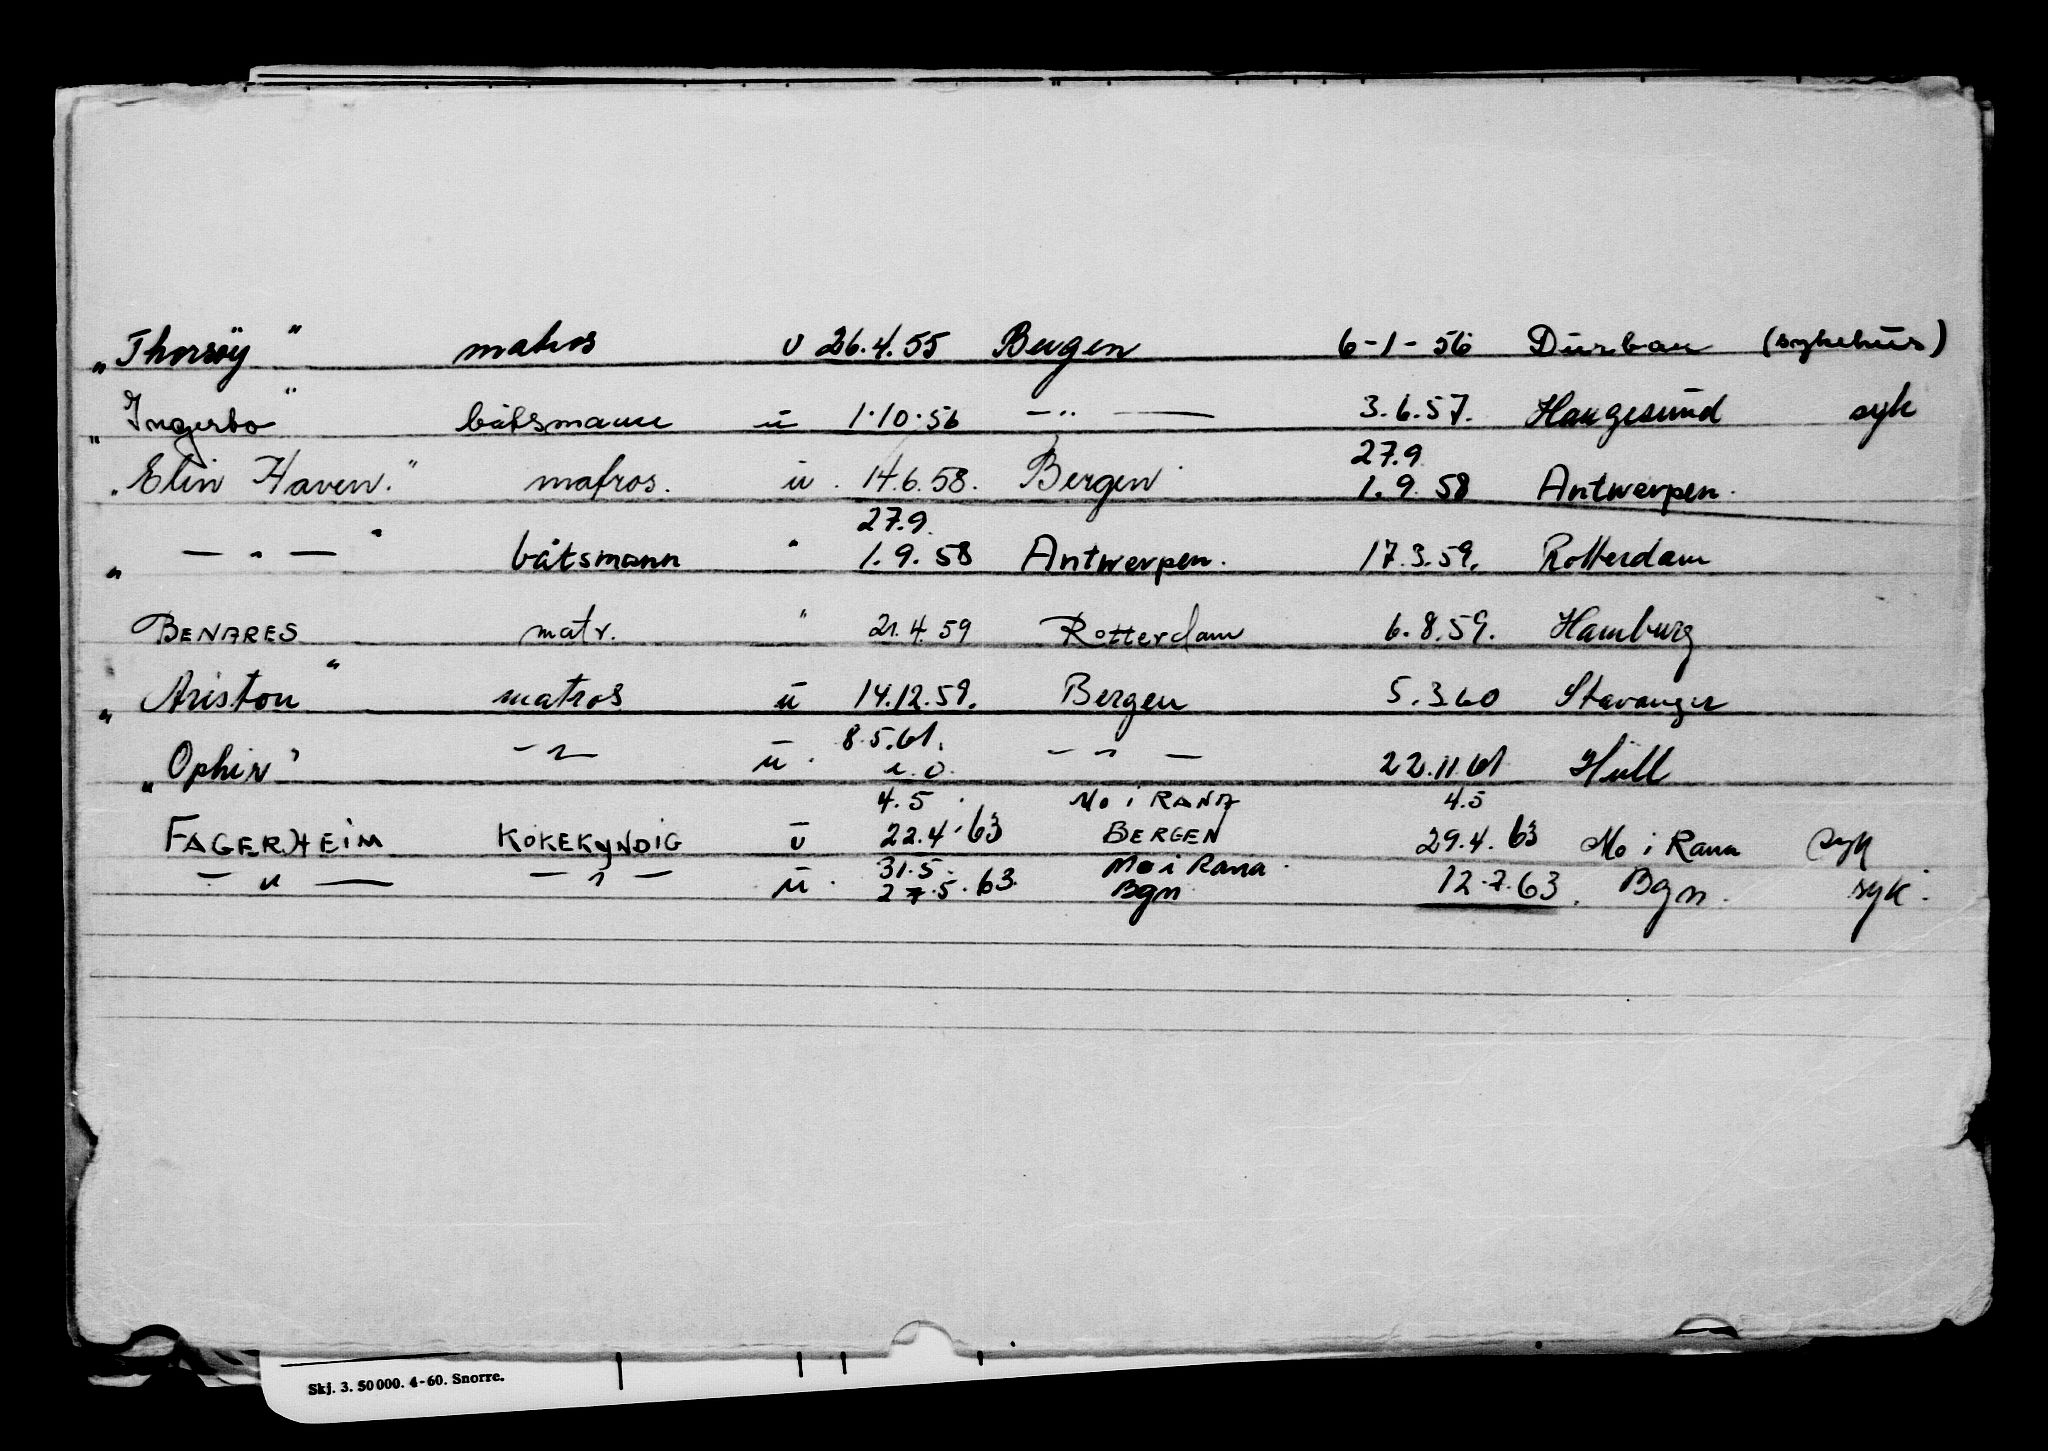 „Thorsöy" matros u 26.4.55 Bergen 6-1-56 Durban (sykehus)
„Ingerbo" båtsmann u 1.10.56 —"— 3.6.57. Haugesund syk
27.9
„Elin Haven." matros. u. 14.6.58. Bergen 1.9.58 Antwerpen.
27.9.
„ — " — " båtsmann " 1.9.58 Antwerpen. 17.3.59. Rotterdam
BENARES matr. " 21.4.59 Rotterdam 6.8.59. Hamburg
„Ariston" matros u 14.12.59. Bergen 5.3.60 Stavanger
8.5.61.
„Ophir" —"— u. — " — 22.11.61 Hull
4.5. Mo i RANA 4.5
FAGERHEIM KOKEKYNDIG u 22.4.63 BERGEN 29.4.63 Mo i Rana syk
31.5. Mo i Rana.
— " — — " — u. 27.5.63. Bgn 12.7.63. Bgn. syk.
Skj. 3. 50000. 4-60. Snorre.